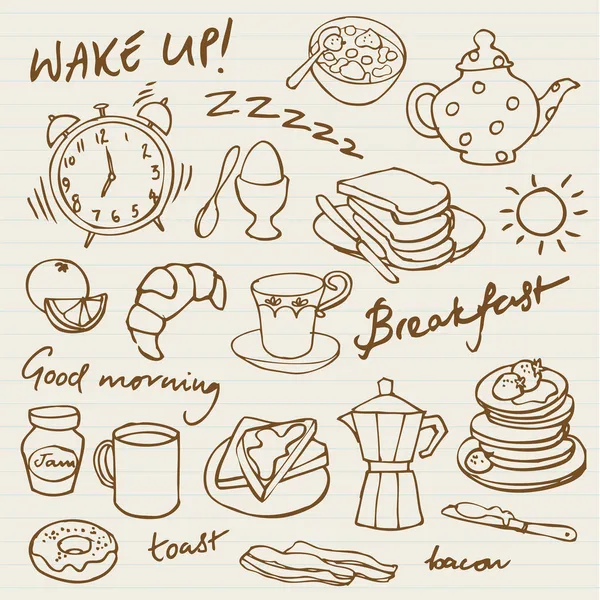 WAKE UP!
ZZZZZZ
12 1 2 3 4 5 6 7 8 9 10 11
Breakfast
Good morning
Jam
toast
bacon